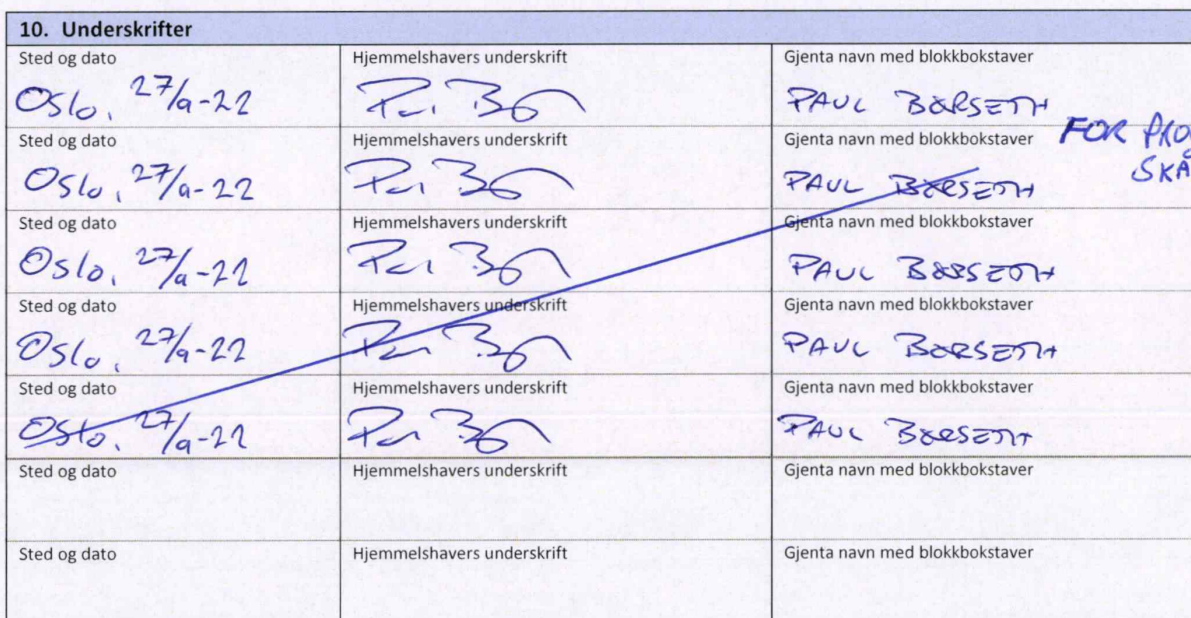 10. Underskrifter
Sted og dato Hjemmelshavers underskrift Gjenta navn med blokkbokstaver
Oslo, 27/9-22 PAUL BØRSETH
FOR
Sted og dato Hjemmelshavers underskrift Gjenta navn med blokkbokstaver
Oslo, 27/9-22 PAUL BØRSETH
Sted og dato Hjemmelshavers underskrift Gjenta navn med blokkbokstaver
Oslo, 27/9-22 PAUL BØRSETH
Sted og dato Hjemmelshavers underskrift Gjenta navn med blokkbokstaver
Oslo, 27/9-22 PAUL BØRSETH
Sted og dato Hjemmelshavers underskrift Gjenta navn med blokkbokstaver
Oslo, 27/9-22 PAUL BØRSETH
Sted og dato Hjemmelshavers underskrift Gjenta navn med blokkbokstaver
Sted og dato Hjemmelshavers underskrift Gjenta navn med blokkbokstaver